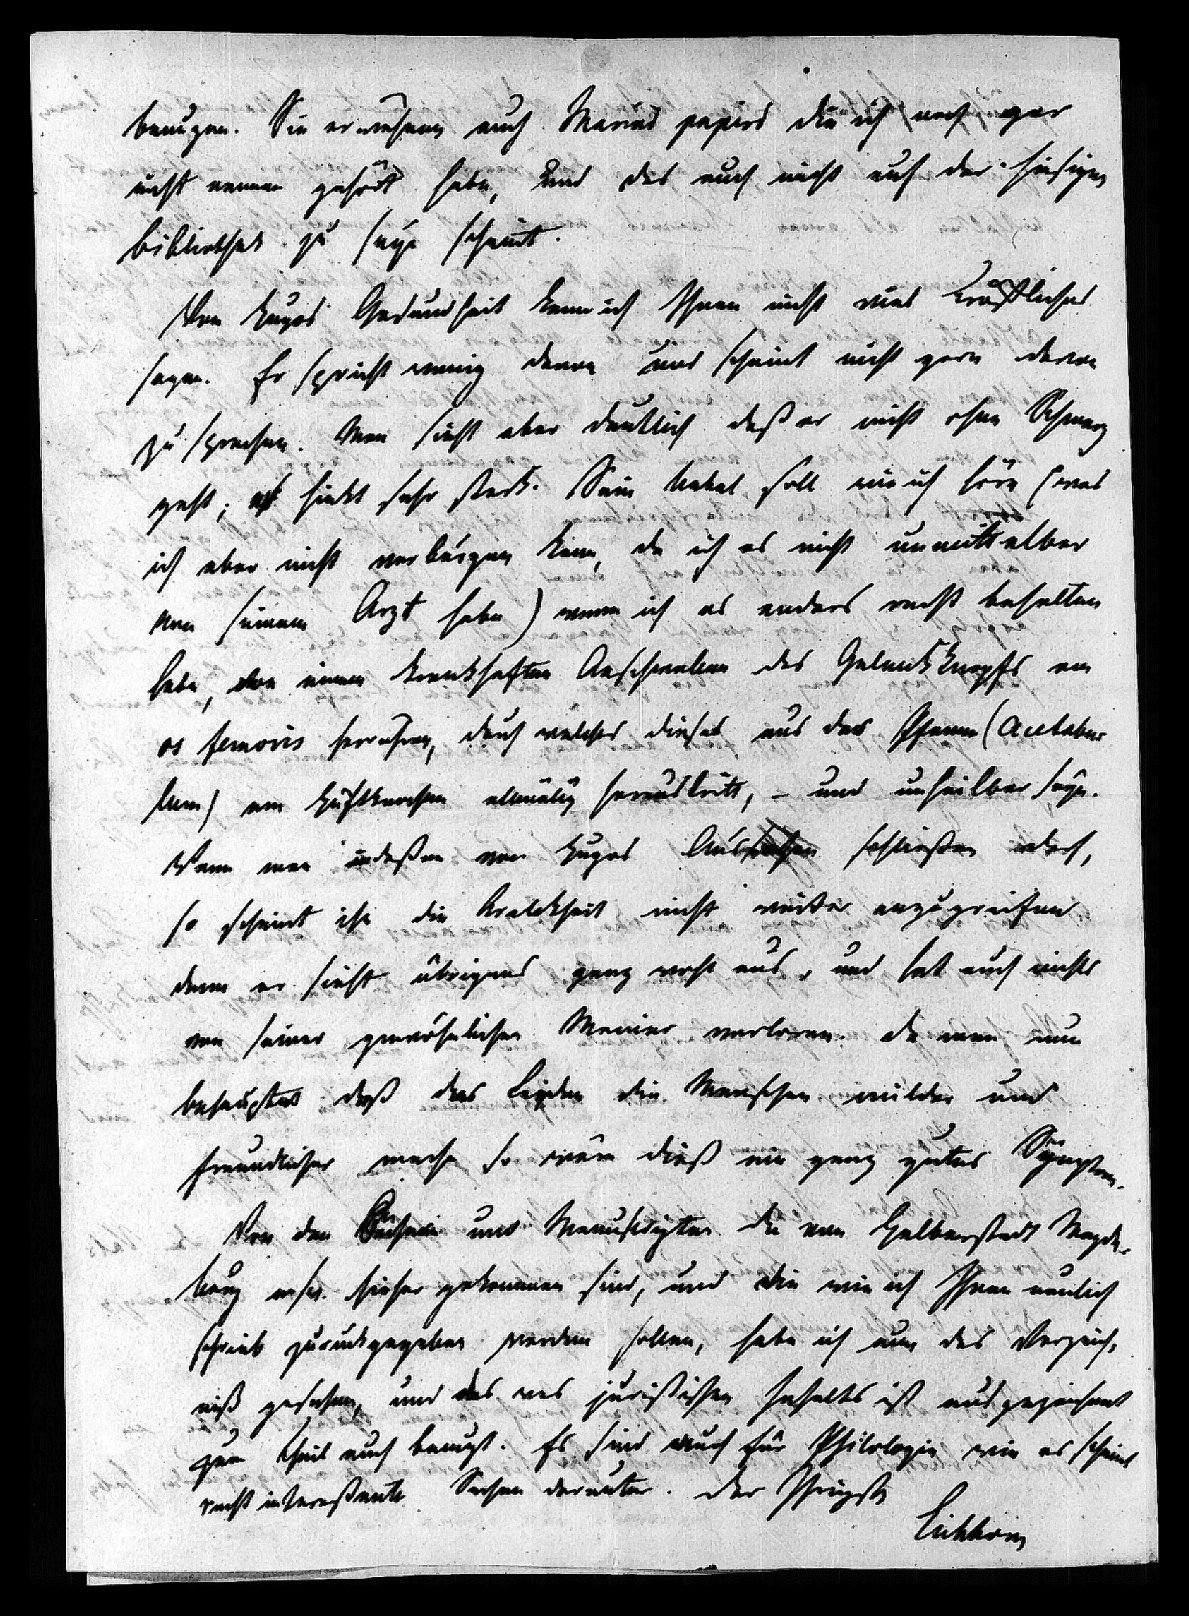 benuzen. Sie erwehnen auch Marini papiri die ich noch gar
nicht nennen gehört habe, und das auch nicht auf der hiesigen
Bibliothek zu seyn scheint.
Von Hugos Gesundheit kann ich Ihnen nicht viel Tröstliches
sagen. Er spricht wenig davon und scheint nicht gern davon
zu sprechen. Man sieht aber deutlich daß er nicht ohne Schmerz
geht; er hinkt sehr stark. Sein Uebel soll wie ich höre (was
ich aber nicht verbürgen kann, da ich es nicht unmittelbar
von seinem Arzt habe) wenn ich es anders recht behalten
habe, von einem krankhaften Anschwellen des Gelenkknopfs am
os femoris herrühren, durch welches dieses aus der Pfanne (Acetabu-
lum) am Hüftknochen allmälig heraustritt, – und unheilbar seyn.
Wenn man indeßen von Hugos Aussehen schließen darf,
so scheint ihn die Krankheit nicht weiter anzugreifen
denn er sieht übrigens ganz wohl aus, und hat auch nichts
von seiner gewöhnlichen Manier verloren. Da man nun
behauptet daß das Leiden die Menschen milder und
freundlicher mache so wäre dieß ein ganz gutes Symptom.
Von den Büchern und Manuscripten die von Halberstadt Magde-
burg usw. hieher gekommen sind, und die wie ich Ihnen neulich
schrieb zurückgegeben werden sollen, habe ich nun das Verzeich-
niß gesehen, und das was juristischen Inhalts ist ausgezeichnet
zum Theil auch benuzt. Es sind auch für Philologie wie es scheint
recht interessante Sachen darunter. Der Ihrigste
Eichhorn